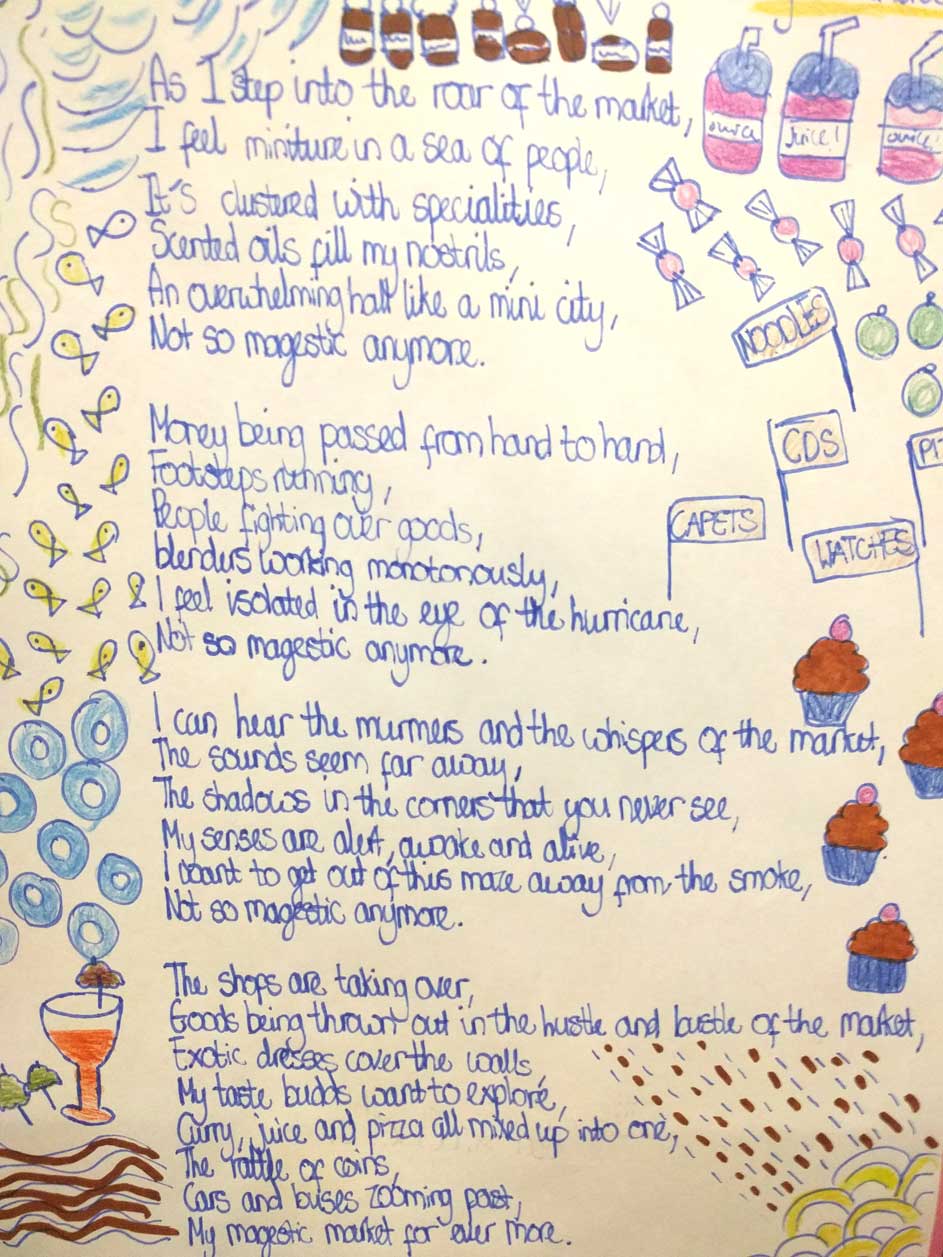 Juice!
As I step into the roar of the market,
I feel miniture in a sea of people,
It's clustered with specialities,
Scented oils fill my nostrils,
An overwhelming hall like a mini city,
Not so magestic anymore.
NOODLES
CDS
CAPETS
WATCHES
Money being passed from hand to hand,
Footsteps running,
People fighting over goods,
blenders working monotonously,
I feel isolated in the eye of the hurricane,
Not so magestic anymore.
I can hear the murmers and the whispers of the market,
The sounds seem far away,
The shadows in the corners that you never see,
My senses are alert, awake and alive,
I want to get out of this maze away from the smoke,
Not so magestic anymore.
The shops are taking over,
Goods being thrown out in the hustle and bustle of the market,
Exotic dresses cover the walls,
My taste budds want to explore,
Curry, juice and pizza all mixed up into one,
The rattle of coins,
Cars and buses zooming past,
My magestic market for ever more.